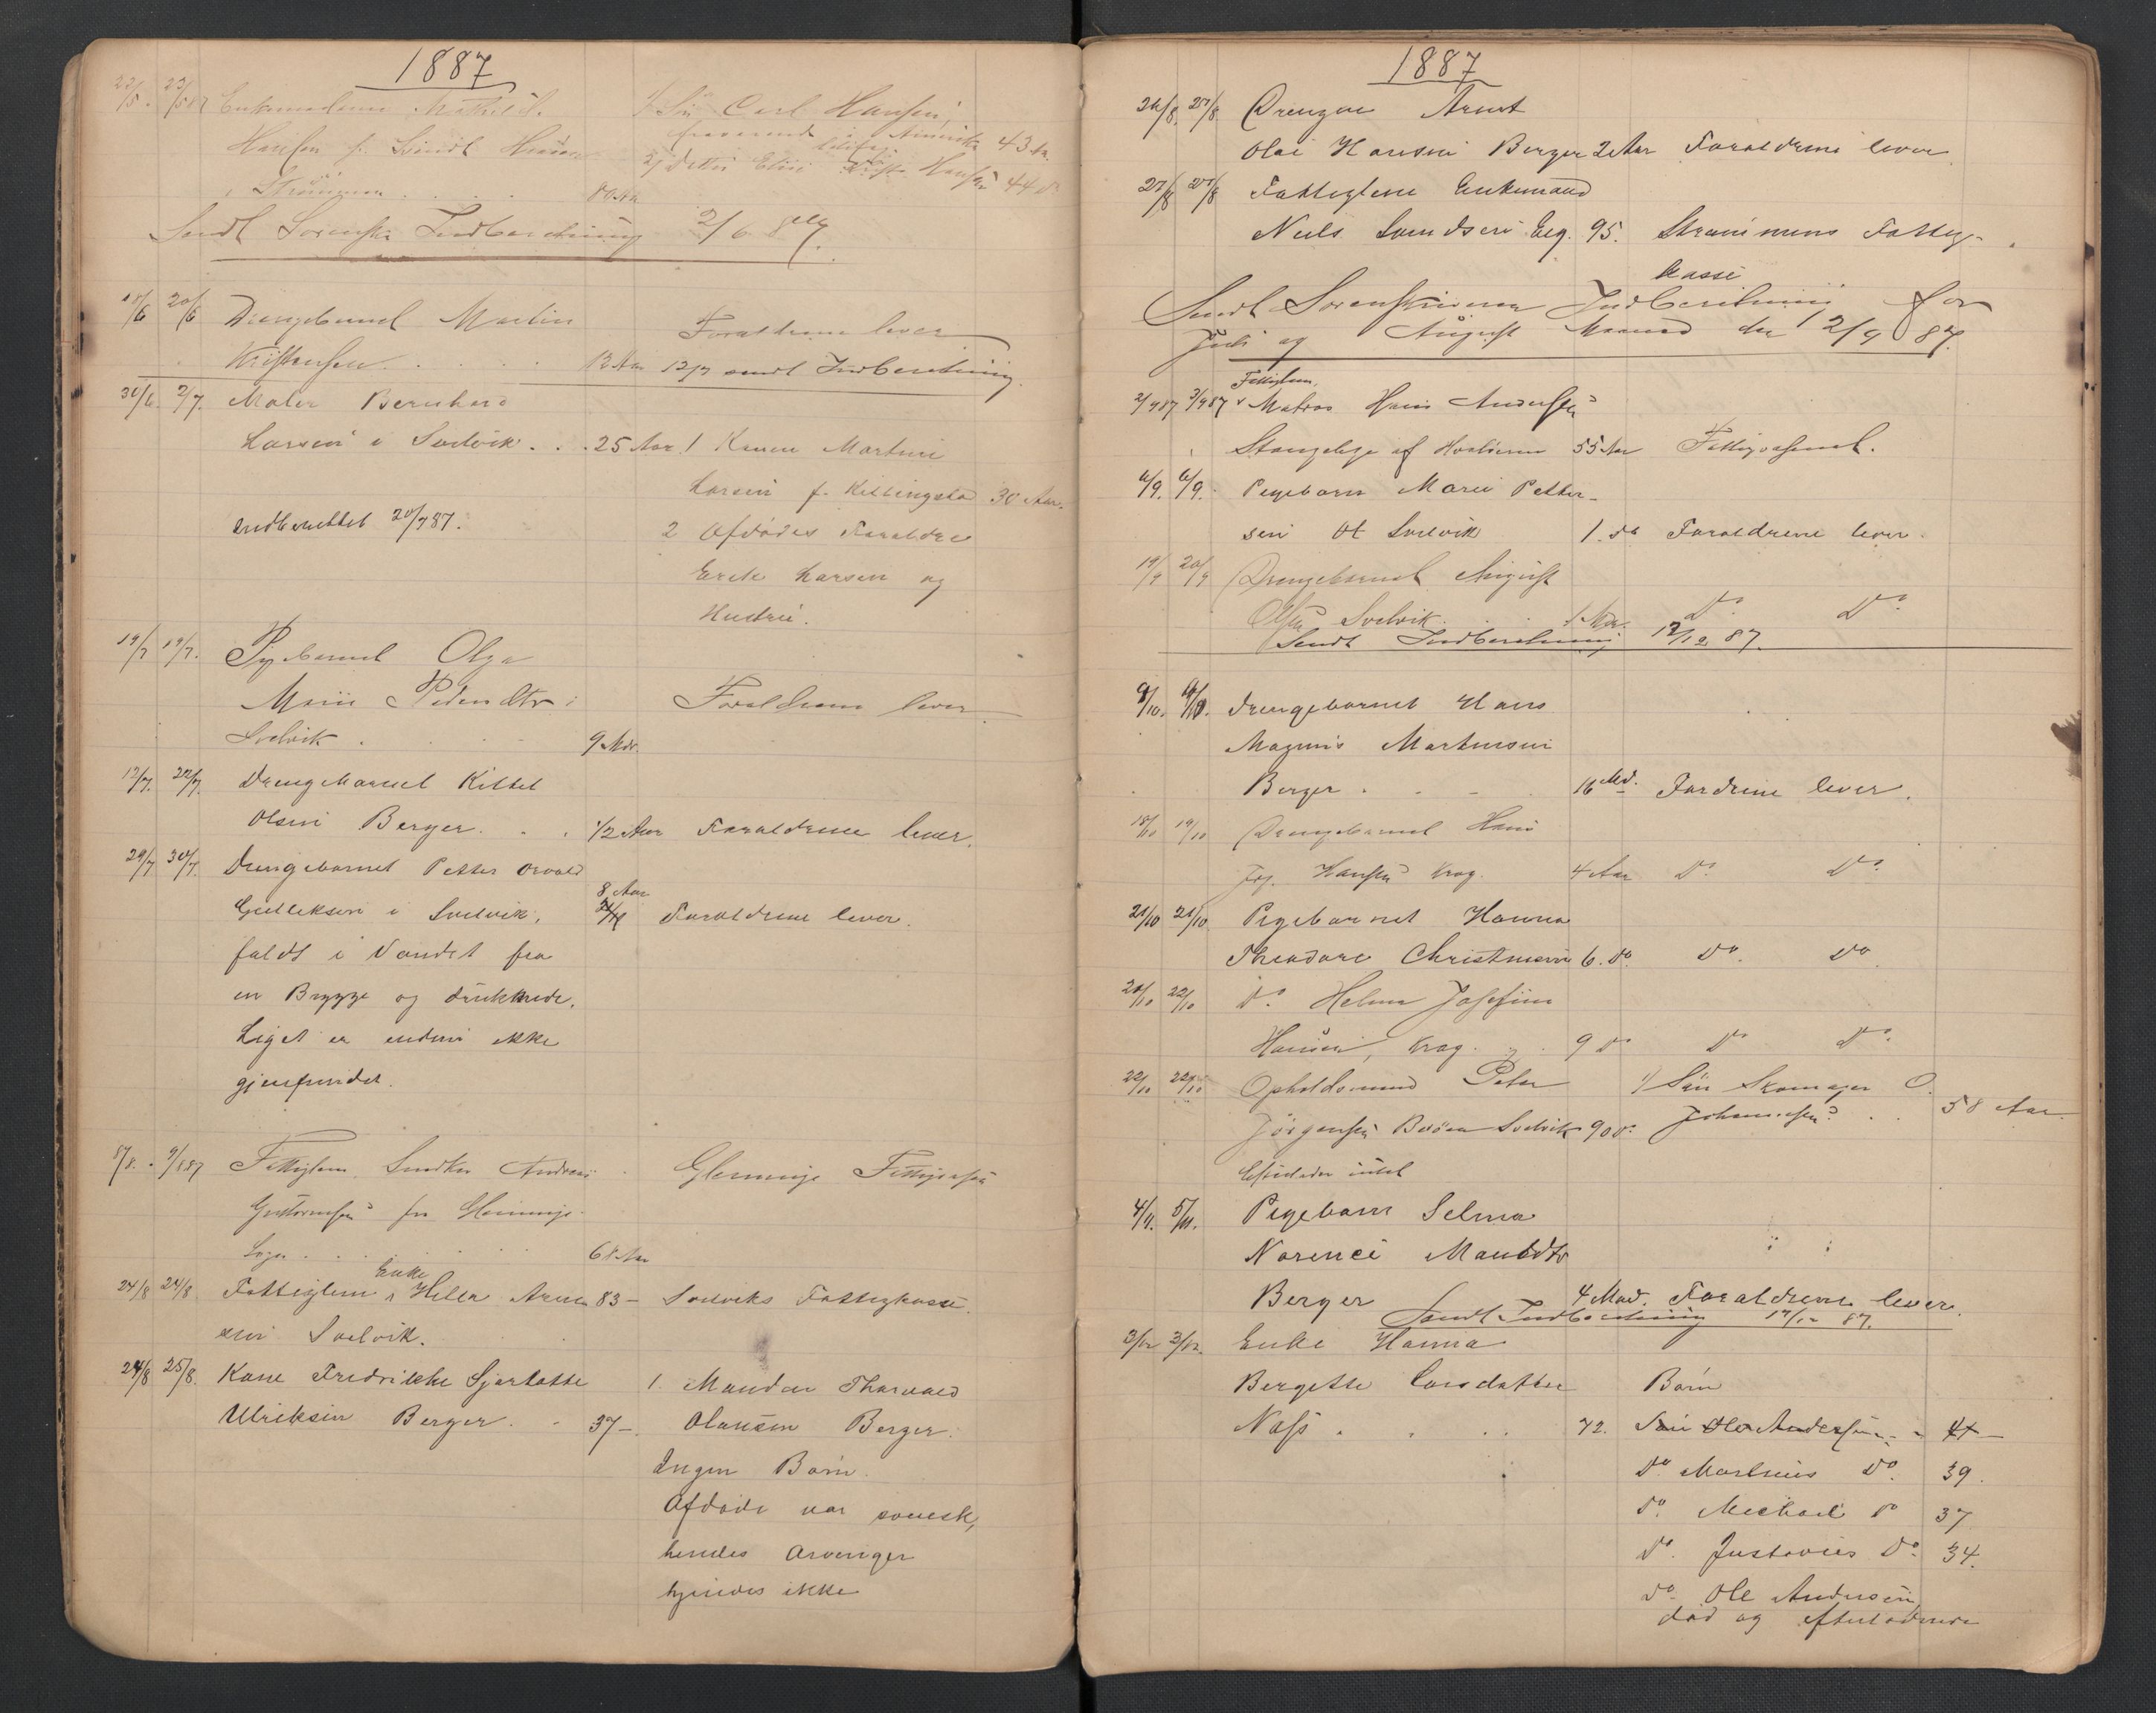 1887
22/5. 23/5 87 Enkemadam Mathilde
1/ Sön Carl Hansen,
Hansen f.
fraværende i Amerika 43 Aar
2/ Datter Elise Hansen 44 do
i Strömmen . . . 80 Aar
Sendt Sorenskr. Indberetning 2/6 87.
18/6 20/6 Drengebarnet Martin
Forældrene lever
Kristensen . . . . 12 Aar 12/7 sendt Indberetning.
30/6. 2/7. Maler Bernhard
Larsen i Svelvik . . . 25 Aar. 1 Karen Martine
Larsen f. Kellingstad 30 Aar.
Indberettet 20/7 87.
2 Afdødes Forældre
Erik Larsen og
Hustru.
19/7 19/7. Pigebarnet Olga
Marie Pedersdtr i
Forældrene lever.
Svelvik . . . 9 Mdr.
12/7. 22/7. Drengebarnet Kittel
Olsen Berger. . . 1/2 Aar Forældrene lever.
29/7 30/7. Drengebarnet Petter Orvald
8 Aar
Gulleksen i Svelvik, Forældrene lever.
faldt i Vandet fra
en Brygge og druknede.
Liget er endnu ikke
gjenfundet.
8/8. 9/8 87 Fattiglem Andreas
Glemminge Fattigvæsen
Gulbrandsen fra Glemminge
. . . . 68 Aar
Enke
24/8 24/8 Fattiglem Helle Arne 83 – Svelviks Fattigkasse.
sen Svelvik.
24/8 25/8. Kone Fredrikke Sjarlotte 1. Manden Thorvald
Ulriksen Berger. . 37 –. Olausen Berger.
Ingen Børn.
Afdøde var svensk,
hendes Arvinger
kjendes ikke
1887
26/8. 27/8. Drengen Arnt
Olai Hansen Berger 2 Aar Forældrene lever.
27/8 27/8 Fattiglem Enkemand
Niels Svendsen Eeg. 95. Strømmens Fattig-
kasse
Sendt Sorenskriveren Indberetning for
Juli og August Maaned den 2/9 87.
Fattiglem,
2/9 87 3/9 87 Matros Hans Andersen
Stangebye af Hvaløerne 55 Aar Fattigvæsenet.
6/9. 6/9. Pigebarn Marie Petter-
sen Svelvik 1. do Forældrene lever.
19/9 20/9 Drengebarnet August
Olsen Svelvik. . . 1 Aar. Do. Do.
Sendt Indberetning 12/12 87.
8/10. 9/10. Drengebarnet Hans
Magnus Martinsen
Berger . . . 16 Md. Fordrene lever.
18/10 19/10 Drengebarnet Hans
Joh. Hansen Krog. 4 Aar Do. Do.
21/10 21/10 Pigebarnet Hanna
Theodore Christensen 6. Do. Do. Do
20/10 22/10 Do. Helma Josefine
Hansen, Krog. . . 9 Do Do Do.
22/10 22/10 Opholdsmand Peter 1/ Sön Skomager O.
Jørgensen Svelvik 90 Do. Johannesen . . 58 Aar.
Efterlader intet
4/11. 5/11. Pigebarn Selma
Norence
Berger 4 Mnd. Forældrene lever.
Sendt Indberetning 17/12 87.
3/12 3/12. Enke Hanna
Bergette Larsdatter Børn
Næss . . . . 72. Sön Ole Andersen . . 41 –
Do. Martinius Do. 39.
Do. Michael Do 37
Do. Gustavus Do. 34.
Do. Ole Andersen
død og efterladende